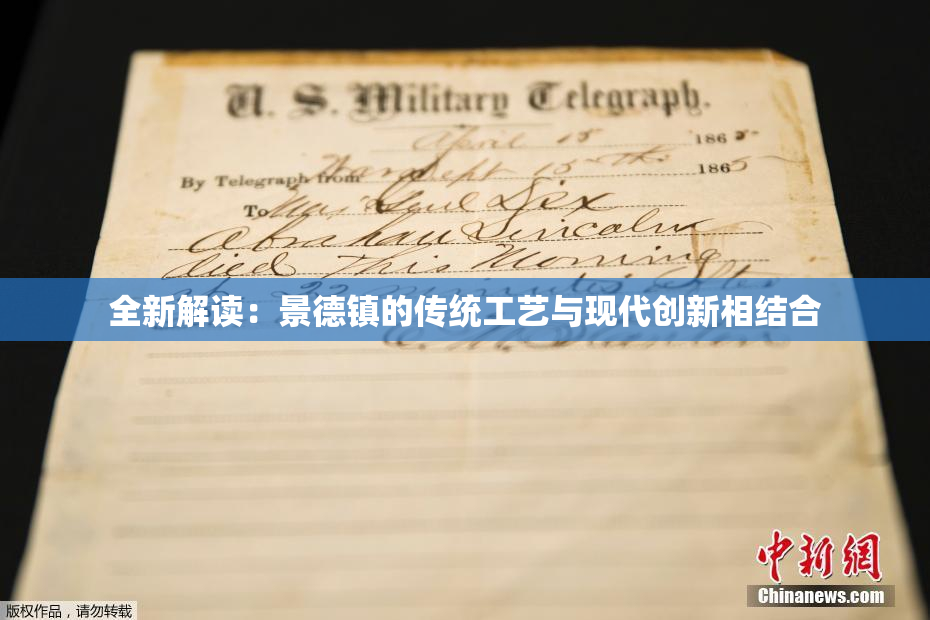 U. S. Military Telegraph.
April 15 1865
By Telegraph from War Dept 15th 1865
To Maj Genl Dix
Abraham Lincoln
died This Morning
at 22 minutes after
全新解读：景德镇的传统工艺与现代创新相结合
E. M. Stanton
中新網
Chinanews.com
版权作品，请勿转载